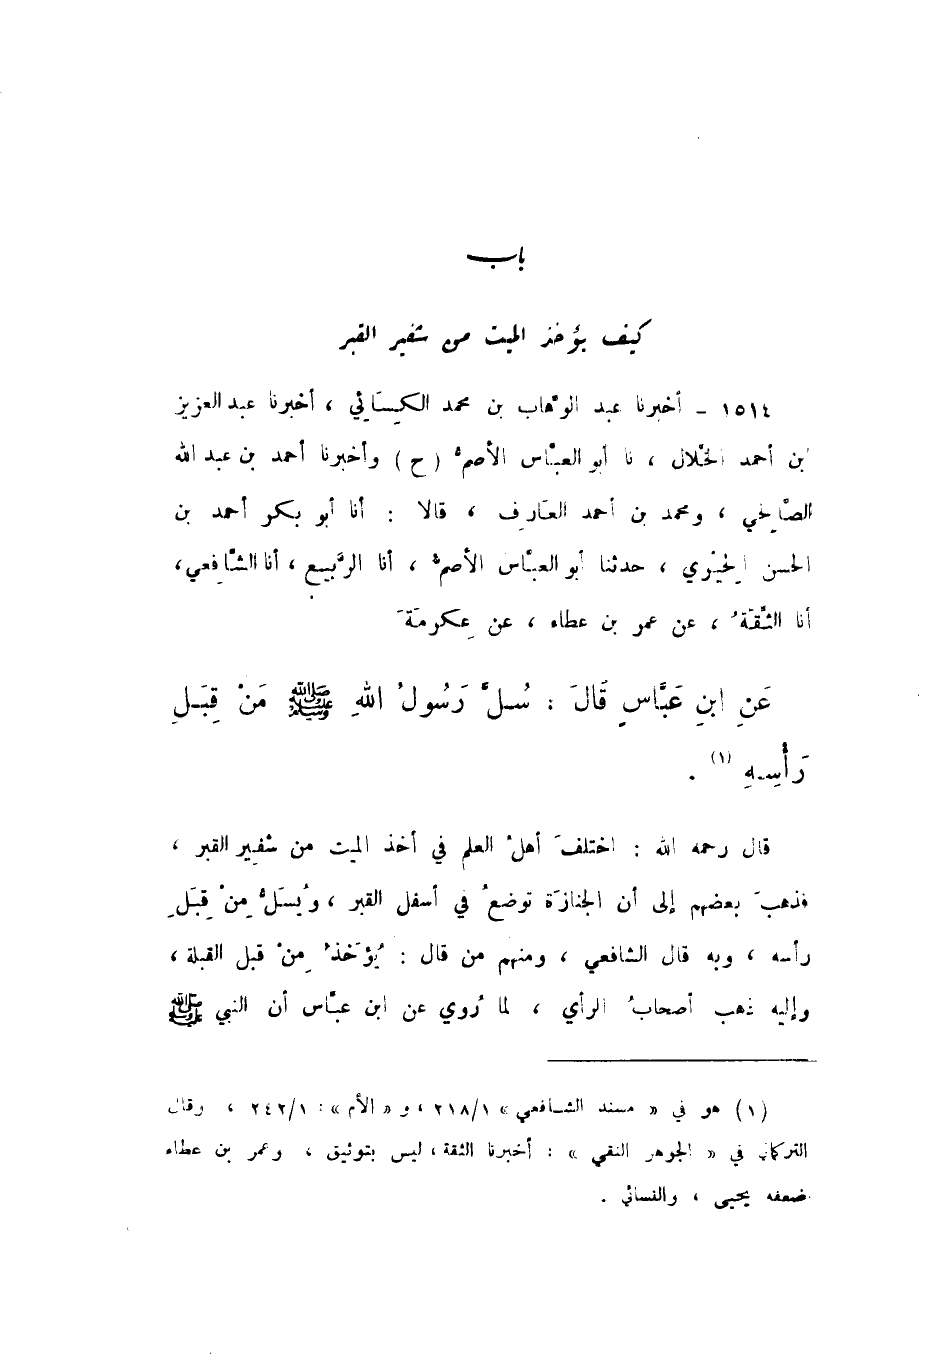 باب
كيف يؤخذ الميت من شفير القبر
١٥١٤ – أخبرنا عبد الوهّاب بن محمد الكِسَائي ، أخبرنا عبد العزيز
ابن أحمد الخلّال ، نا أبو العبّاس الأصمُّ (ح) وأخبرنا أحمد بن عبد الله
الصَّالِحي ، ومحمد بن أحمد العَارِف ، قالا : أنا أبو بكر أحمد بن
الحسن الحِيْري ، حدثنا أبو العبَّاس الأصمُّ ، أنا الرَّبيع ، أنا الشَّافِعي ،
أنا الثِّقَةُ ، عن عمر بن عطاء ، عن عِكرمَةَ
عَنِ ابنِ عَبَّاسٍ قَالَ : سُلَّ رَسُولُ اللهِ ﷺ مَنْ قِبَلِ
رَأْسِهِ (١) .
قال رحمه الله : اختلفَ أهلُ العلم في أخذ الميت من شفير القبر ،
فذهبَ بعضهم إلى أن الجنازَة توضعُ في أسفل القبر ، ويُسَلُّ مِنْ قِبَلِ
رأسه ، وبه قال الشافعي ، ومنهم من قال : يُؤخَذُ مِنْ قبل القبلة ،
وإليه ذهب أصحابُ الرأي ، لما رُوي عن ابن عبَّاس أن النبي ﷺ
(١) هو في « مسند الشافعي » ٢١٨/١ ، و « الأم » : ٢٤٢/١ ، وقال
التركماني في « الجوهر النقي » : أخبرنا الثقة ، ليس بتوثيق ، وعمر بن عطاء
ضعفه يحيى ، والنسائي .